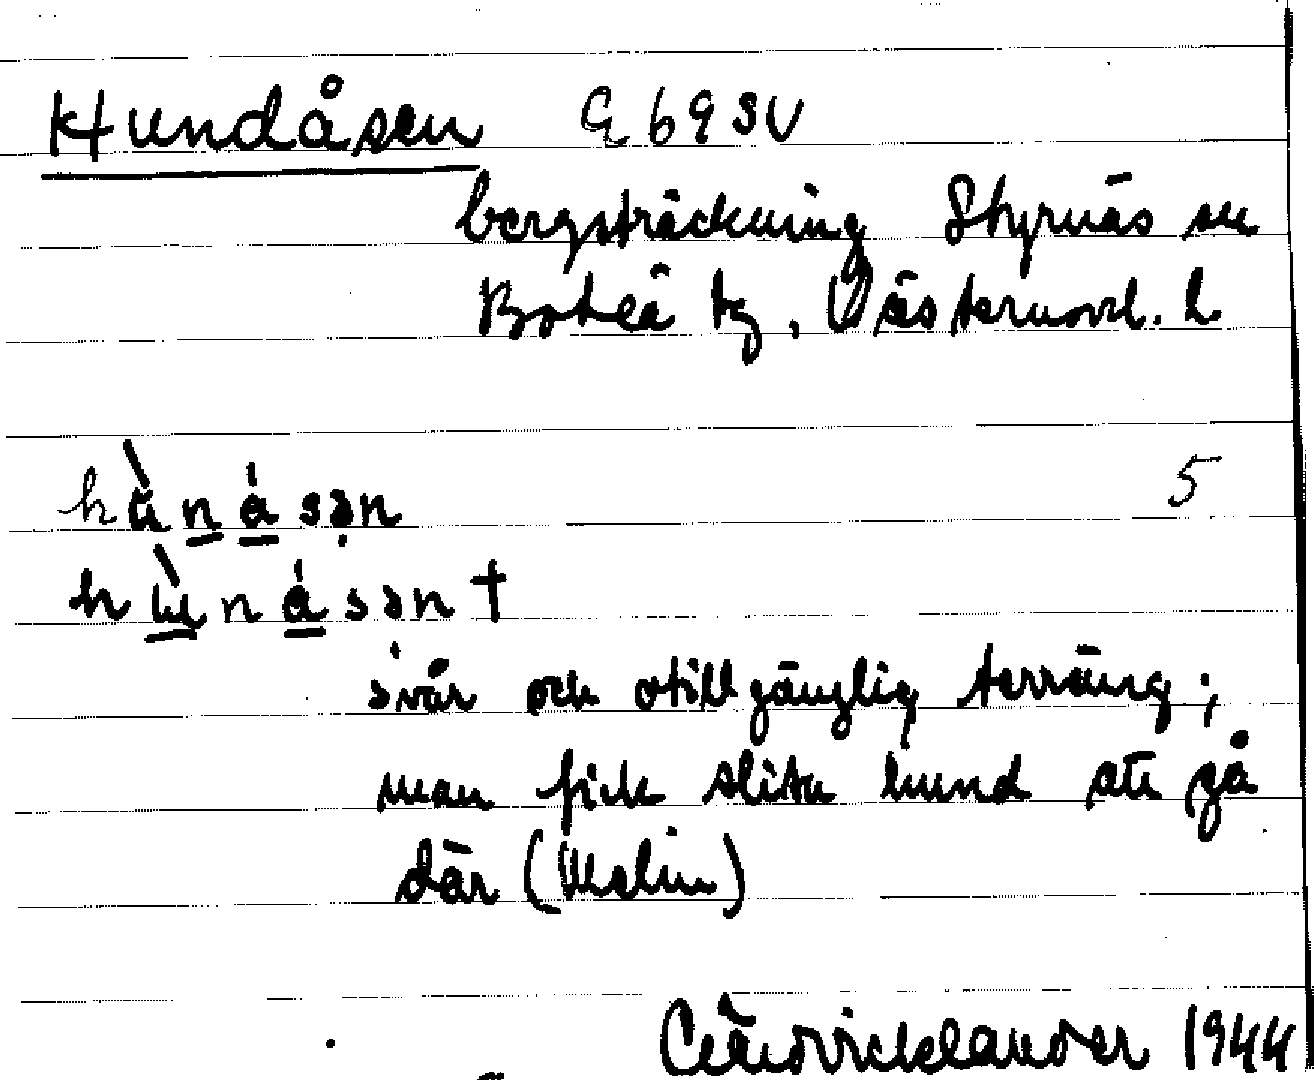 Hundåsen G 69 SV
bergsträckning Styrnäs sn
Boteå tg, Västernorrl. L
hùnåsən 5
hùnåsən †
svår och otillgänglig terräng;
man fick slita hund att gå
där (Malin)
1944